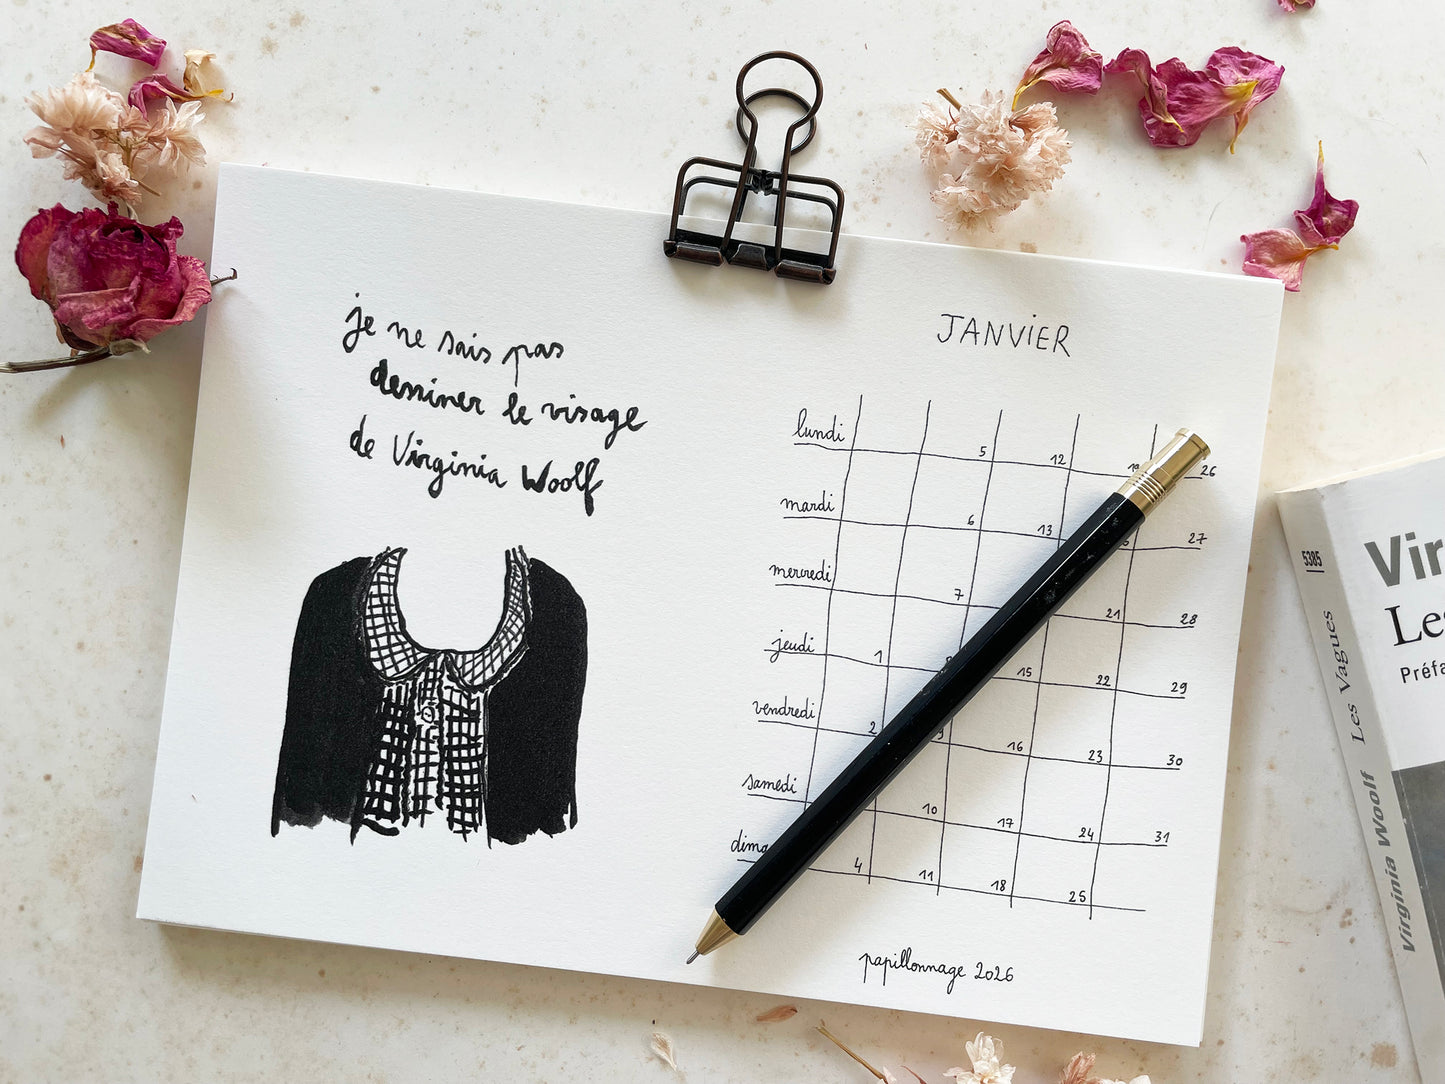 je ne sais pas
dessiner le visage
de Virginia Woolf
JANVIER
lundi 5 12 26
mardi 6 13 27
mercredi 7 21 28
jeudi 1 15 22 29
vendredi 2 9 16 23 30
samedi 10 17 24 31
4 11 18 25
papillonnage 2026
5385
Les Vagues
Virginia Woolf